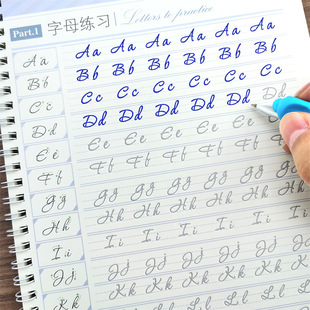 Part.1 字母练习 Letters to practice
Aa Aa Aa Aa Aa Aa Aa
Bb Bb Bb Bb Bb Bb Bb
Cc Cc Cc Cc Cc Cc Cc
Dd Dd Dd Dd Dd Dd Dd
Ee Ee Ee Ee Ee
Ff Ff Ff Ff Ff Ff
Gg Gg Gg Gg Gg Gg
Hh Hh Hh Hh Hh Hh
Ii Ii Ii Ii Ii Ii
Jj Jj Jj Jj Jj Jj
Kk Kk Kk Kk Kk Kk
Ll Ll Ll